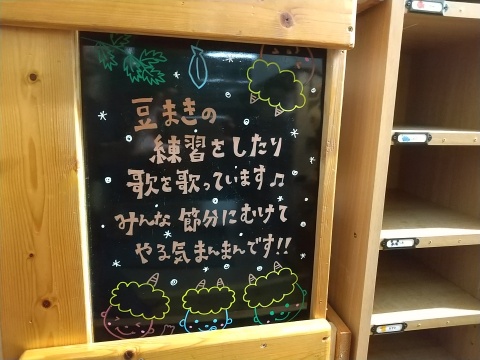 豆まきの
練習をしたり
歌を歌っています♫
みんな節分にむけて
やる気まんまんです!!